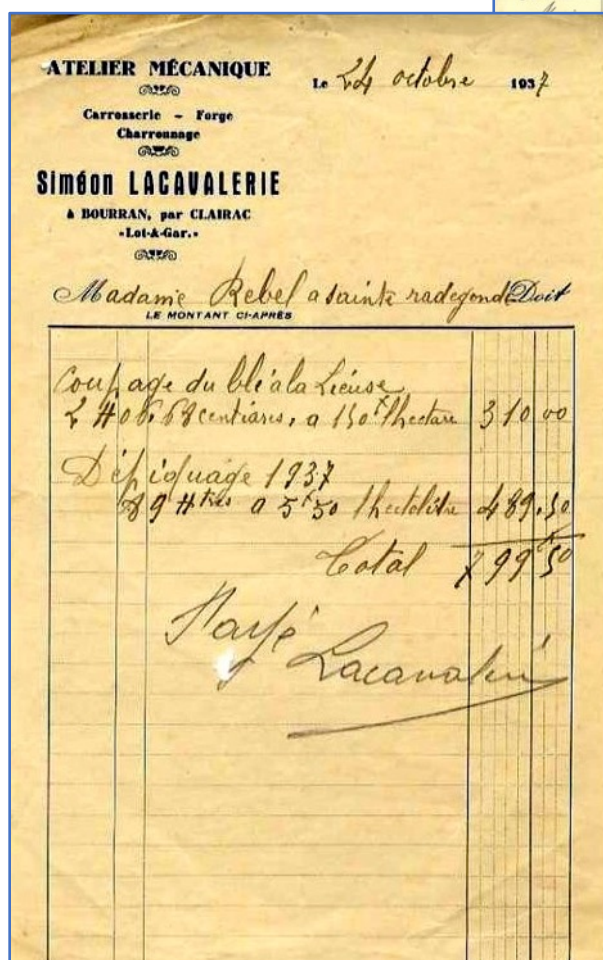 ATELIER MÉCANIQUE
Le 24 octobre 1937
Carrosserie - Forge
Charronnage
Siméon LACAVALERIE
à BOURRAN, par CLAIRAC
-Lot-&-Gar.-
Madame Rebel a sainte radegonde Doit
LE MONTANT CI-APRÈS
Coupage du blé a la Lieuse
2 H 06, 68 centiares, a 150f l'hectare 310,00
Dépiquage 1937
89 Htres a 5f50 l'hectolitre 489,50
Total 799f50
Payé
Lacavalerie